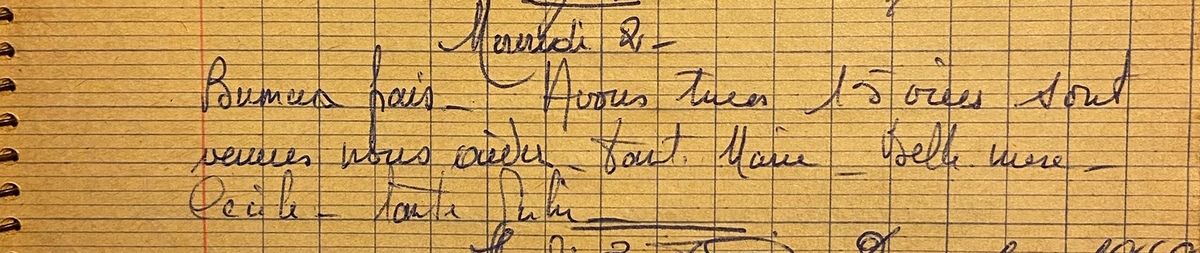 Mercredi 2 -
Brumeux frais - Avons tuer 15 oies sont
venues nous aider - Tant. Marie - Belle-mere -
Cecile - Tante Julie